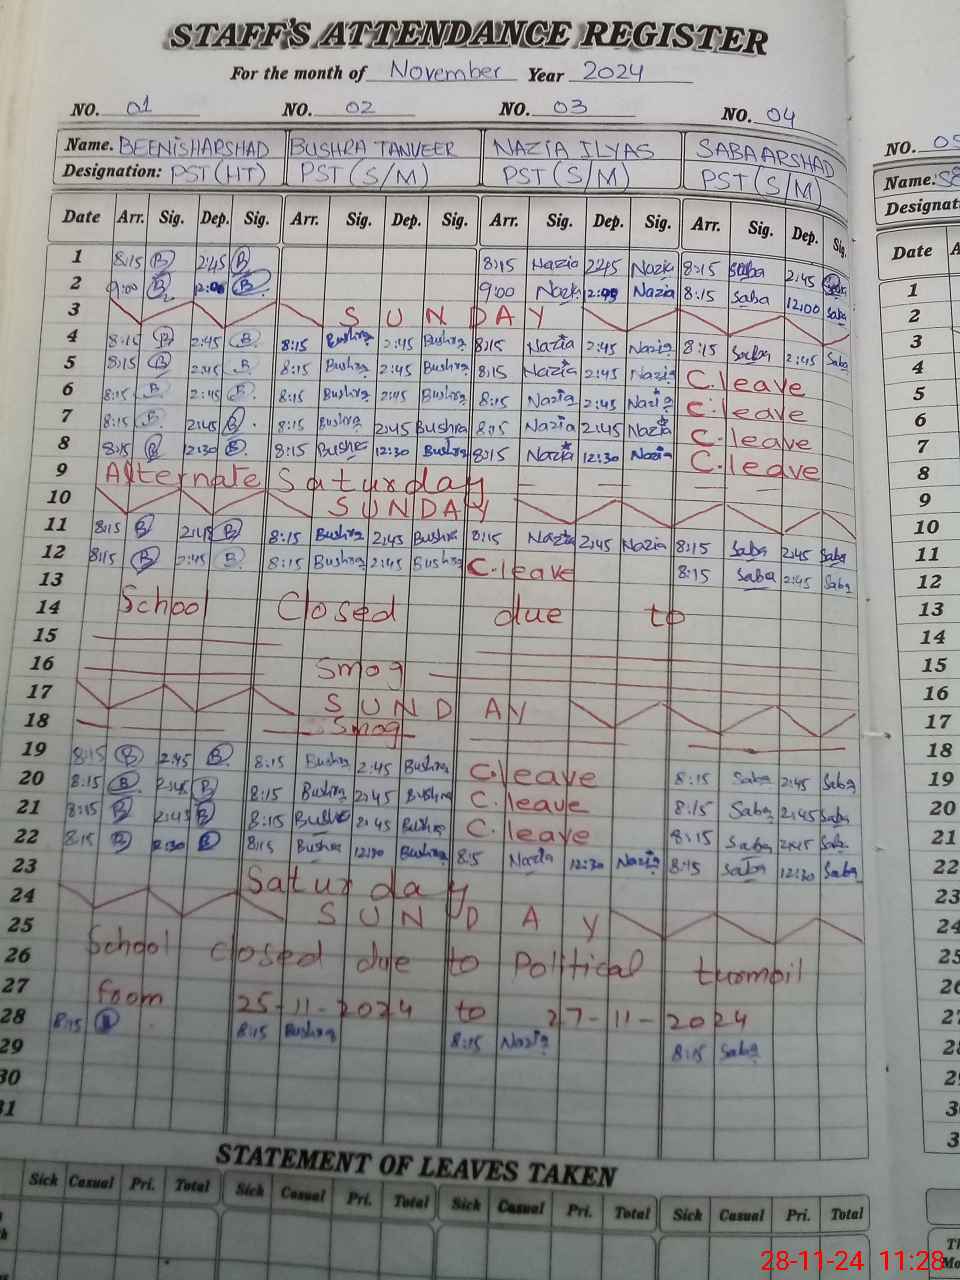 STAFF'S ATTENDANCE REGISTER
For the month of November Year 2024
NO. 01 NO. 02 NO. 03 NO. 04 NO. 05
Name. BEENISHARSHAD BUSHRA TANVEER NAZIA ILYAS SABA ARSHAD Name:
Designation: PST (HT) PST (S/M) PST (S/M) PST (S/M)
Date Arr. Sig. Dep. Sig. Arr. Sig. Dep. Sig. Arr. Sig. Dep. Sig. Arr. Sig. Dep. Sig. Date
1 8:15 B 2:45 B 8:15 Nazia 2:45 Nazia 8:15 Saba 2:45 Saba 1
2 9:00 B 12:00 B 9:00 Nazia 12:00 Nazia 8:15 Saba 12:00 Saba 2
3 SUNDAY 3
4 8:15 B 2:45 B 8:15 Bushra 2:45 Bushra 8:15 Nazia 2:45 Nazia 8:15 Saba 2:45 Saba 4
5 8:15 B 2:45 B 8:15 Bushra 2:45 Bushra 8:15 Nazia 2:45 Nazia C.leave 5
6 8:15 B 2:45 B 8:15 Bushra 2:45 Bushra 8:15 Nazia 2:45 Nazia C.leave 6
7 8:15 B 2:45 B 8:15 Bushra 2:45 Bushra 8:15 Nazia 2:45 Nazia C.leave 7
8 8:15 B 12:30 B 8:15 Bushra 12:30 Bushra 8:15 Nazia 12:30 Nazia C.leave 8
9 Alternate Saturday 9
10 SUNDAY 10
11 8:15 B 2:45 B 8:15 Bushra 2:45 Bushra 8:15 Nazia 2:45 Nazia 8:15 Saba 2:45 Saba 11
12 8:15 B 2:45 B 8:15 Bushra 2:45 Bushra C.leave 8:15 Saba 2:45 Saba 12
13 13
14 School Closed due to 14
15 15
16 Smog 16
17 SUNDAY 17
18 Smog 18
19 8:15 B 2:45 B 8:15 Bushra 2:45 Bushra C.leave 8:15 Saba 2:45 Saba 19
20 8:15 B 2:45 B 8:15 Bushra 2:45 Bushra C.leave 8:15 Saba 2:45 Saba 20
21 8:15 B 2:45 B 8:15 Bushra 2:45 Bushra C.leave 8:15 Saba 2:45 Saba 21
22 8:15 B 12:30 B 8:15 Bushra 12:30 Bushra 8:15 Nazia 12:30 Nazia 8:15 Saba 12:30 Saba 22
23 Saturday 23
24 SUNDAY 24
25 25
26 School closed due to Political turmoil
27 from 25-11-2024 to 27-11-2024
28 8:15 B 8:15 Bushra 8:15 Nazia 8:15 Saba
29
30
31
STATEMENT OF LEAVES TAKEN
Sick Casual Pri. Total Sick Casual Pri. Total Sick Casual Pri. Total Sick Casual Pri. Total
28-11-24 11:28